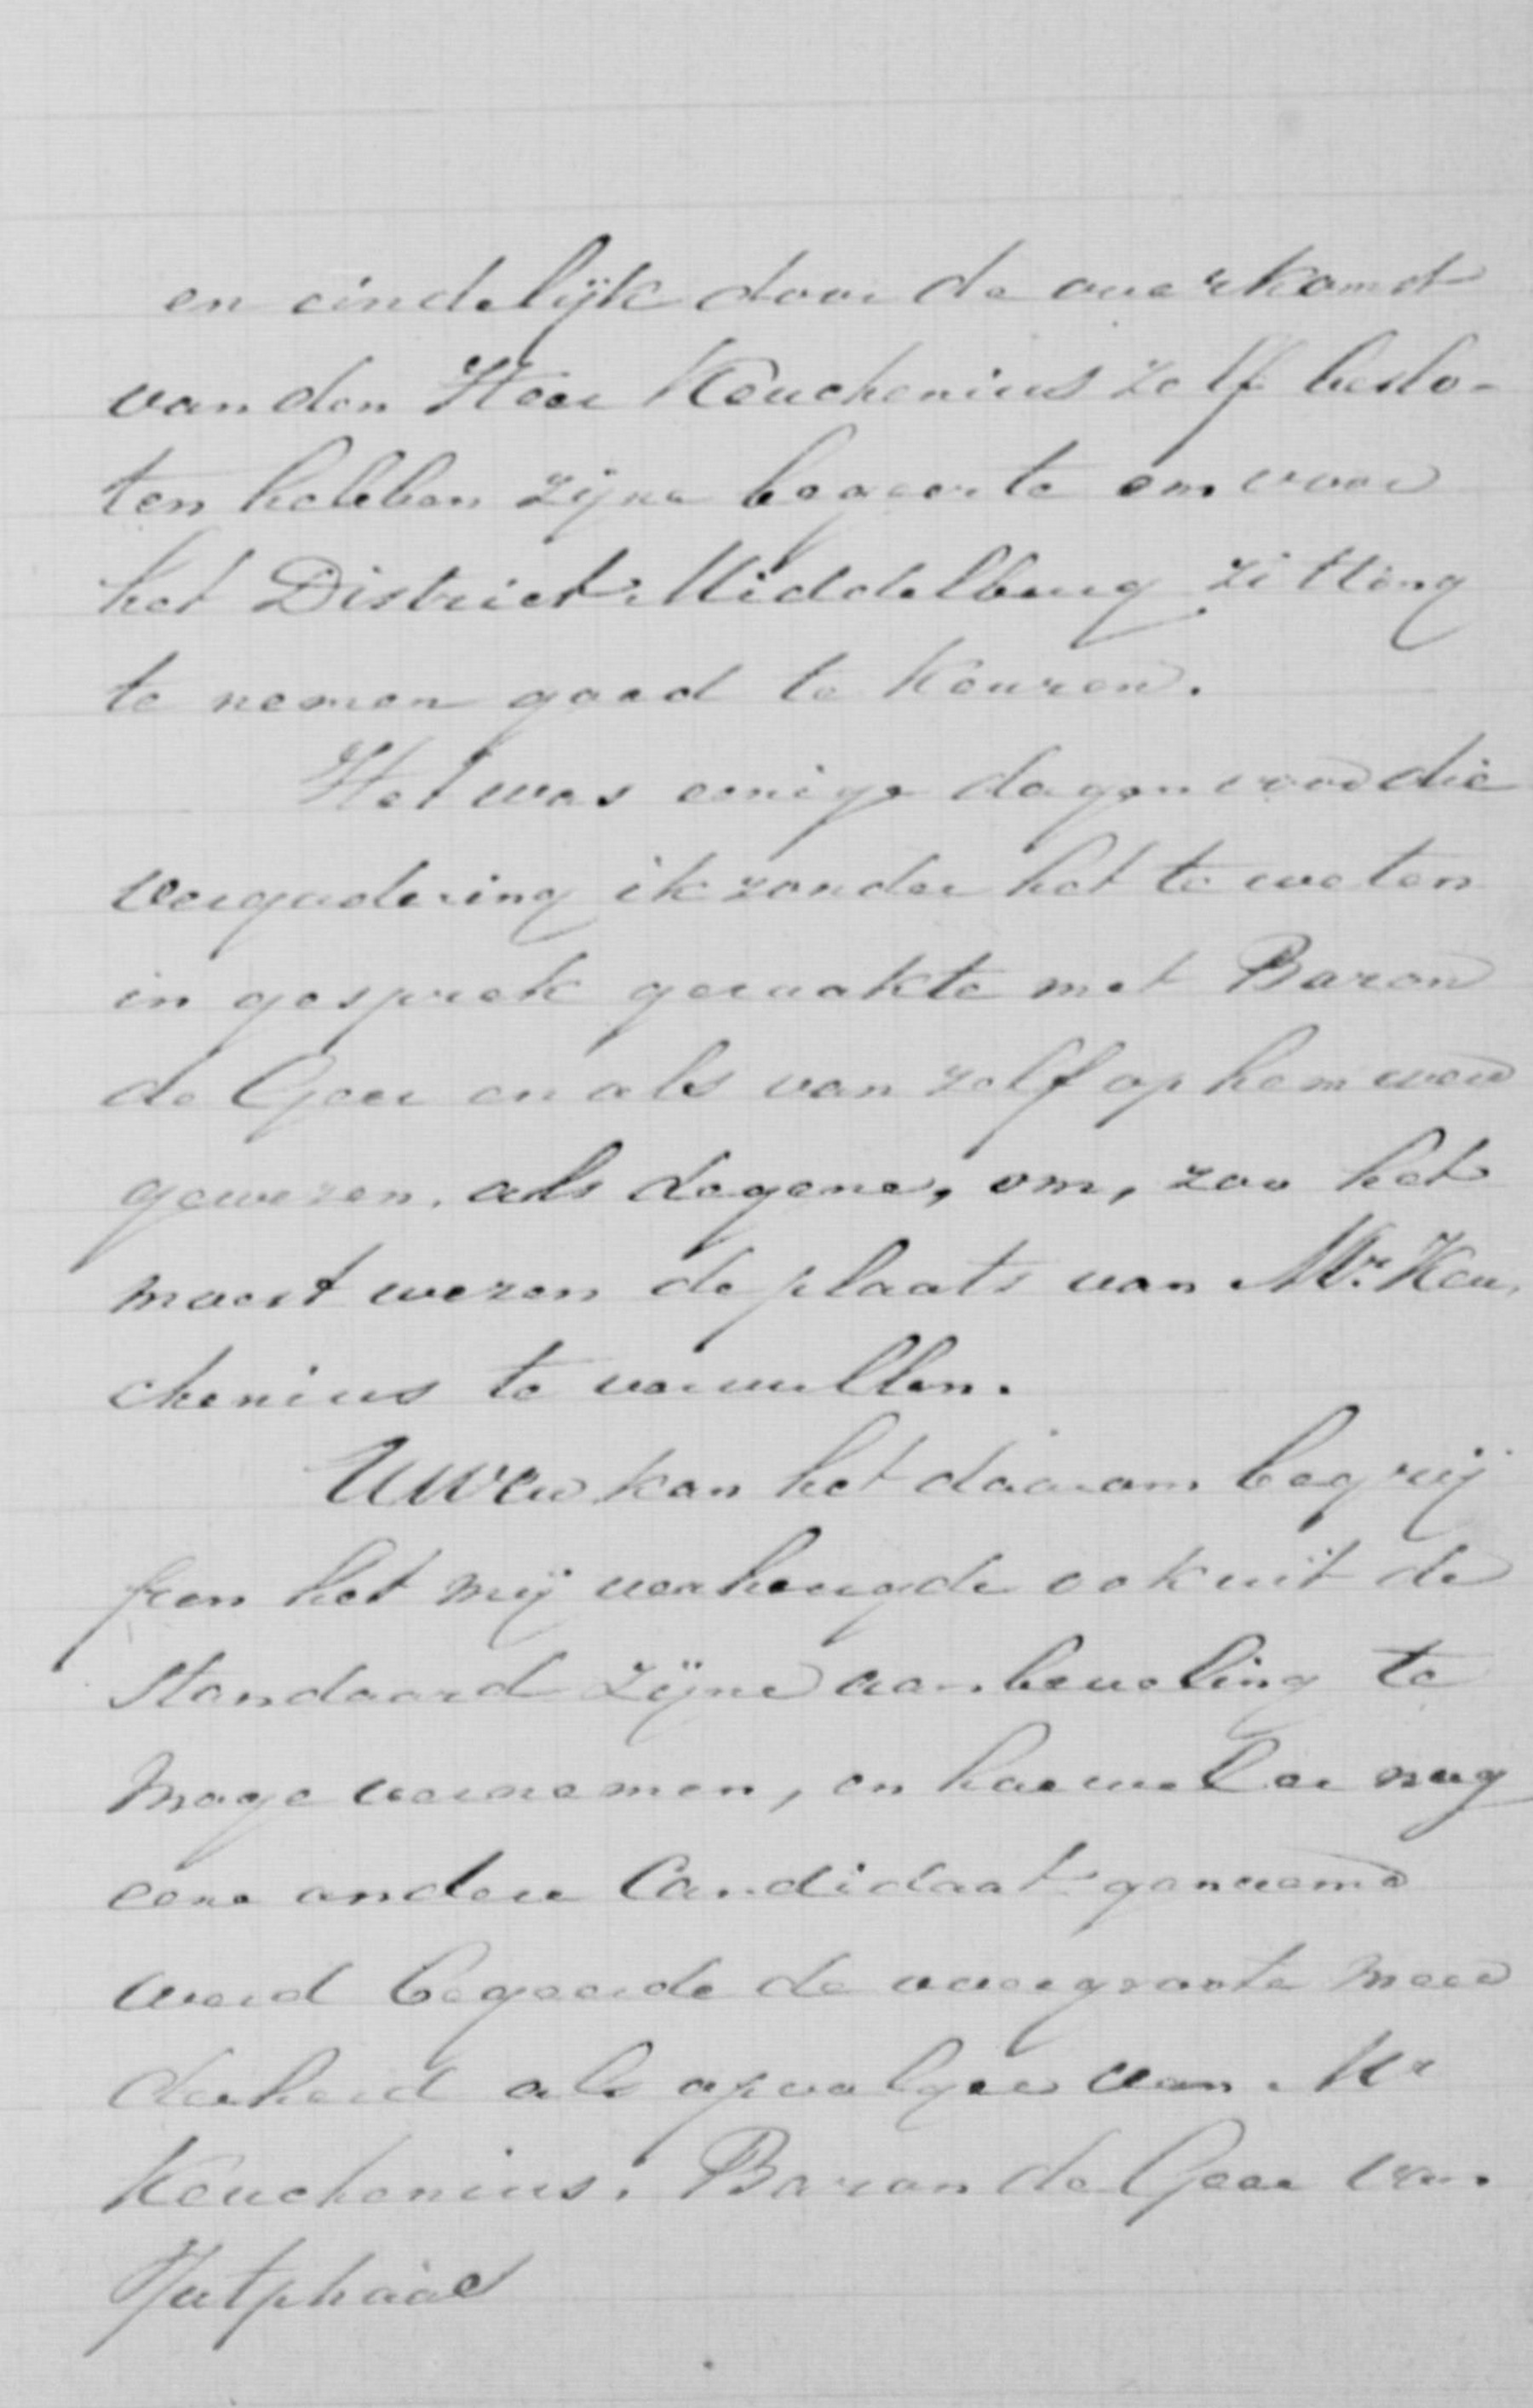 en eindelijk door de overkomst
van den Heer Keuchenius zelf beslo-
ten hebben zijne begeerte om voor
het District Middelburg zitting
te nemen goed te keuren.
Het was eenige dagen voor die
vergadering ik zonder het te weten
in gesprek geraakte met Baron
de Geer en als van zelf op hem werd
gewezen, als degene, om, zoo het
moest wezen de plaats van Mr. Keu,
chenius te vervullen.
UwEw kan het daarom begrij
pen het mij verheugde ook uit de
Standaard zijne aanbeveling te
moge vernemen, en hoewel er nog
eene andere Candidaat genoemd
werd begeerde de overgroote meer
derheid als opvolger van Mr
Keuchenius. Baron de Geer van
Jutphaas